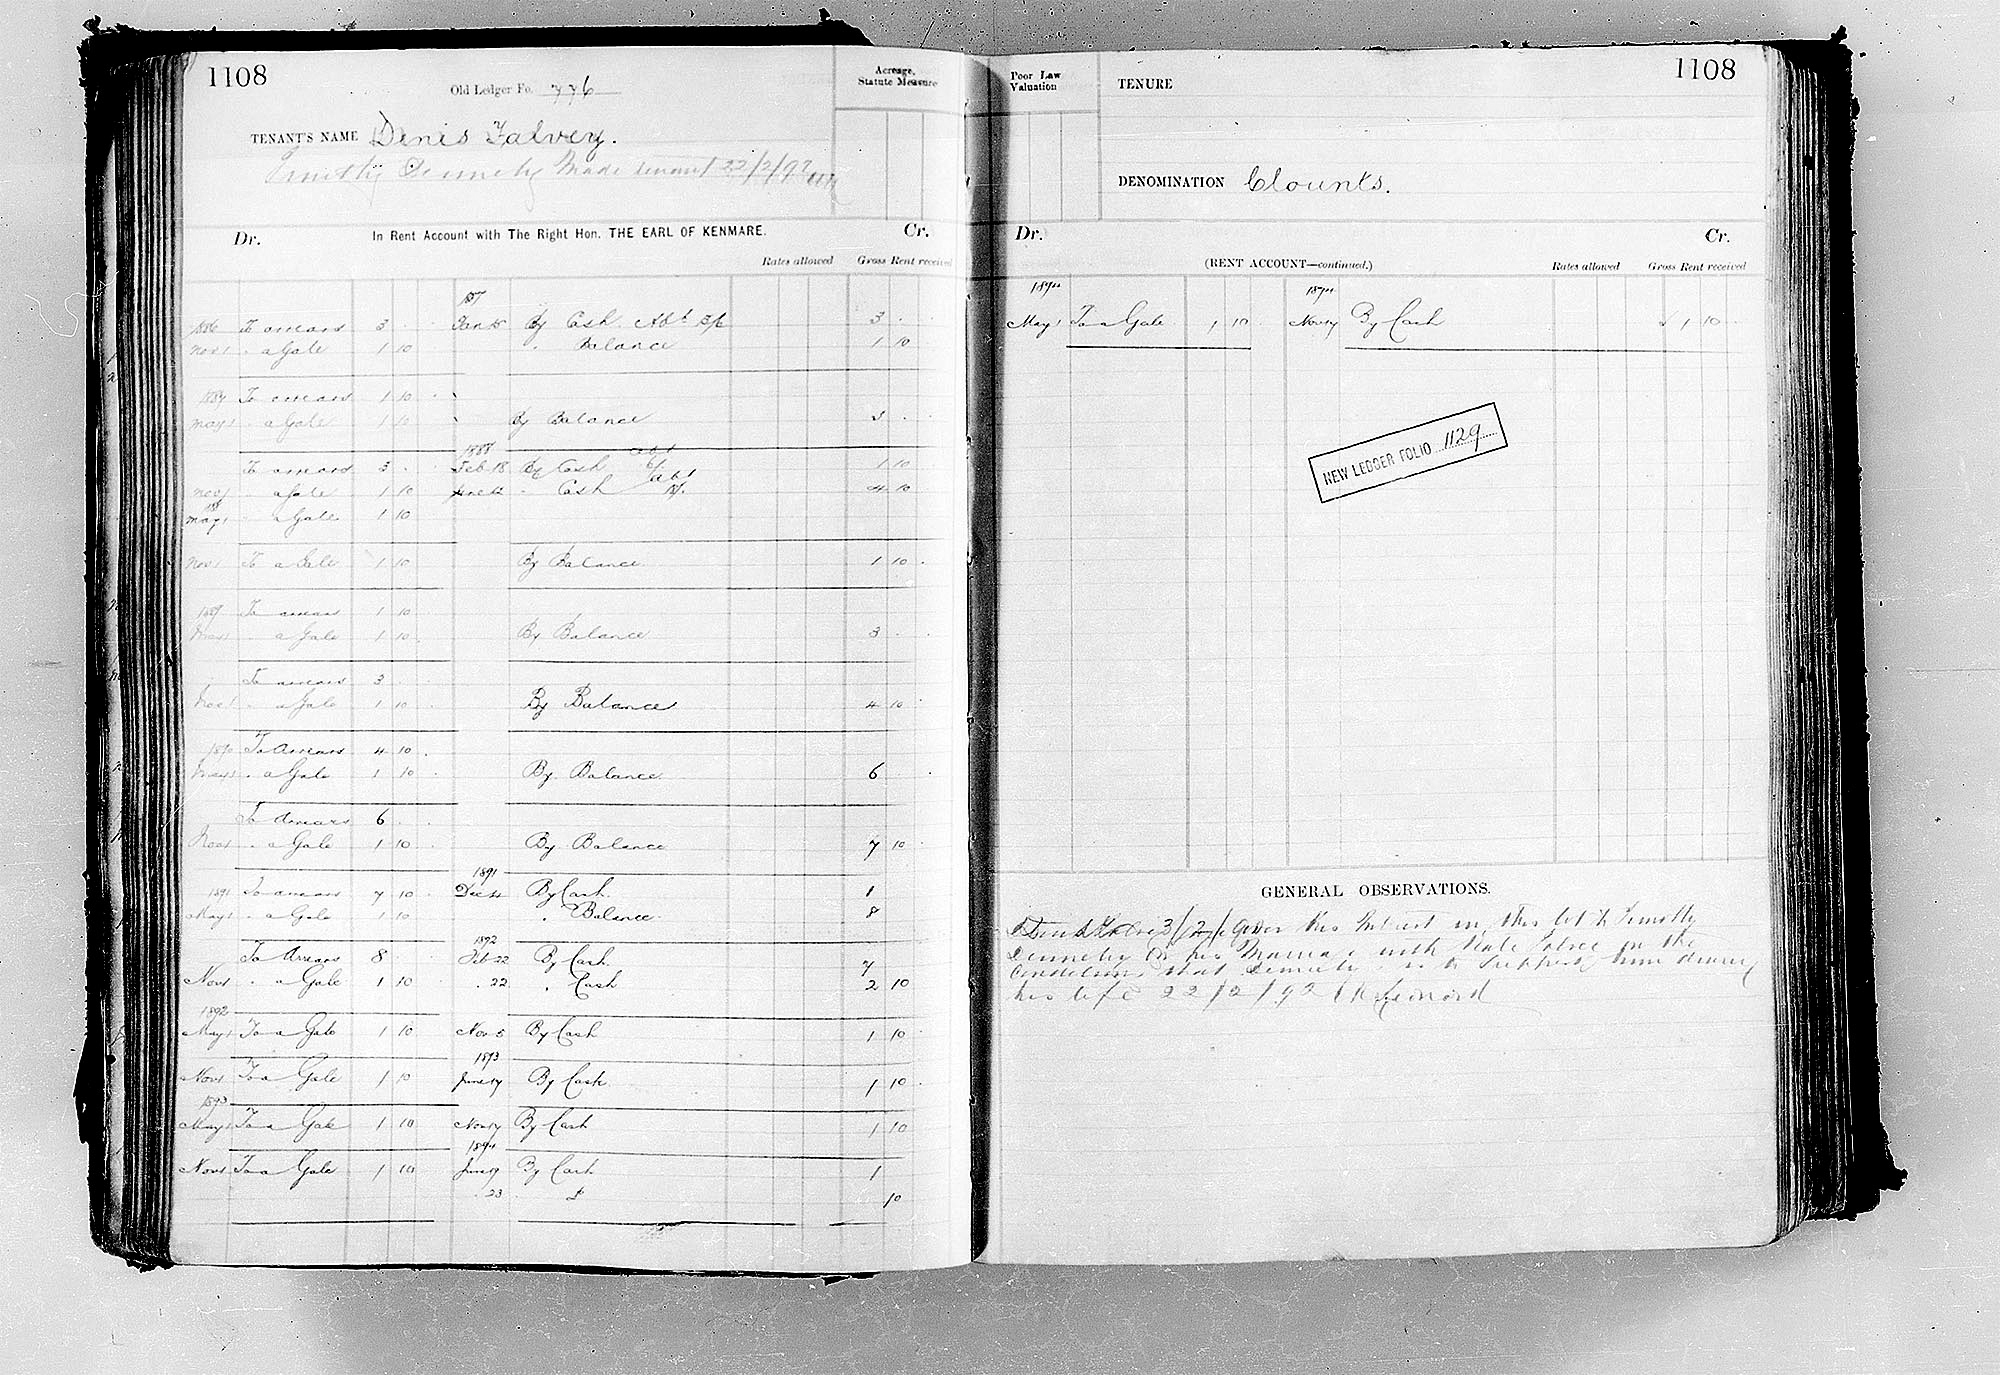 1108
Old Ledger Fo. 776
Acreage, Statute Measure
TENANT'S NAME Denis Falvey.
Timothy Dennehy Made tenant 22/2/92
Dr. In Rent Account with The Right Hon. THE EARL OF KENMARE. Cr.
Rates allowed Gross Rent received
1887
1886 To arrears 3 . Jan 15 By Cash Abt 3/6 3 . .
Nov 1 . a Gale 1 10 . Balance 1 10
1887 To arrears 1 10 .
May 1 . a Gale 1 10 By Balance 3 . .
1888 abt
To arrears 3 . . Feb 18 By Cash 6/. 1 10
Nov 1 . a Gale 1 10 June 12 . Cash abt 4 10
88
May 1 . a Gale 1 10
Nov 1 To a Gale 1 10 By Balance 1 10 .
1889 To arrears 1 10
May 1 . a Gale 1 10 . By Balance 3 . .
To arrears 3 .
Nov 1 . a Gale 1 10 . By Balance 4 10 .
1890 To Arrears 4 10 .
May 1 . a Gale 1 10 By Balance 6 .
To Arrears 6 . .
Nov 1 . a Gale 1 10 . By Balance 7 10
1891
1891 To arrears 7 10 . Dec 4 By Cash 1
May 1 . a Gale 1 10 . Balance 8
1892
To Arrears 8 . Feb 22 By Cash 7
Nov 1 . a Gale 1 10 . . 22 . Cash 2 10
1892
May 1 To a Gale 1 10 Nov 5 By Cash 1 10
1893
Nov 1 To a Gale 1 10 June 17 By Cash 1 10
1893
May 1 To a Gale 1 10 Nov 17 By Cash 1 10
1894
Nov 1 To a Gale 1 10 June 19 By Cash 1
. 23 10
1108
Poor Law Valuation
TENURE
DENOMINATION Clounts.
Dr. Cr.
(RENT ACCOUNT—continued.) Rates allowed Gross Rent received
1894 1894
May 1 To a Gale 1 10 Nov 17 By Cash 1 10
NEW LEDGER FOLIO 1129
GENERAL OBSERVATIONS.
his Interest in this lot to Timothy
Dennehy on his Marriage with Kate Falvey on the
Condition that Dennehy is to Support him during
his life 22/2/92 Leonard